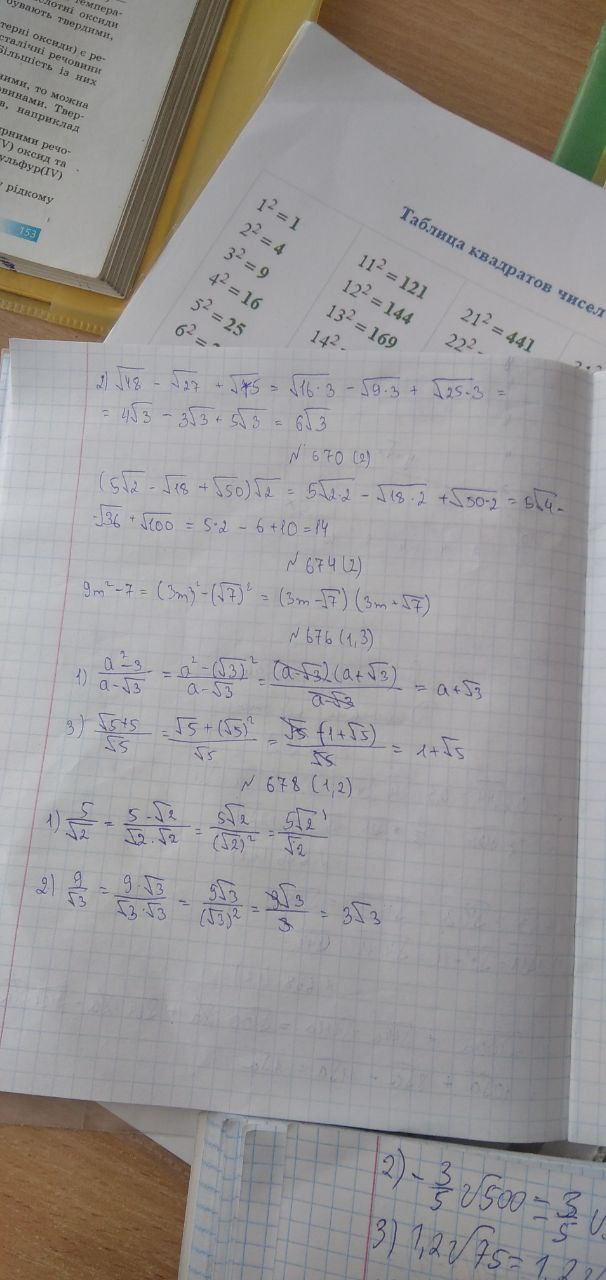 темпера-
кислотні оксиди
бувають твердими,
терні оксиди) є ре-
сталічні речовини
Більшість із них
ними, то можна
овинами. Твер-
в, наприклад
рними речо-
IV) оксид та
ульфур(IV)
у рідкому
153
Таблица квадратов чисел
1² = 1
2² = 4
3² = 9
4² = 16
5² = 25
6² =
11² = 121
12² = 144
13² = 169
14²
21² = 441
22²
2) √48 - √27 + √75 = √16·3 - √9·3 + √25·3 =
= 4√3 - 3√3 + 5√3 = 6√3
№ 670 (2)
(5√2 - √18 + √50)√2 = 5√2·2 - √18·2 + √50·2 = 5√4 -
- √36 + √100 = 5·2 - 6 + 10 = 14
№ 674 (2)
9m² - 7 = (3m)² - (√7)² = (3m - √7) (3m + √7)
№ 676 (1,3)
1) (a² - 3)/(a - √3) = (a² - (√3)²)/(a - √3) = ((a - √3)(a + √3))/(a - √3) = a + √3
3) (√5 + 5)/√5 = (√5 + (√5)²)/√5 = (√5 (1 + √5))/√5 = 1 + √5
№ 678 (1,2)
1) 5/√2 = (5·√2)/(√2·√2) = 5√2/(√2)² = 5√2/√2
2) 9/√3 = (9·√3)/(√3·√3) = 9√3/(√3)² = 9√3/3 = 3√3
2) - 3/5 √500 = 3/5
3) 1,2√75 =